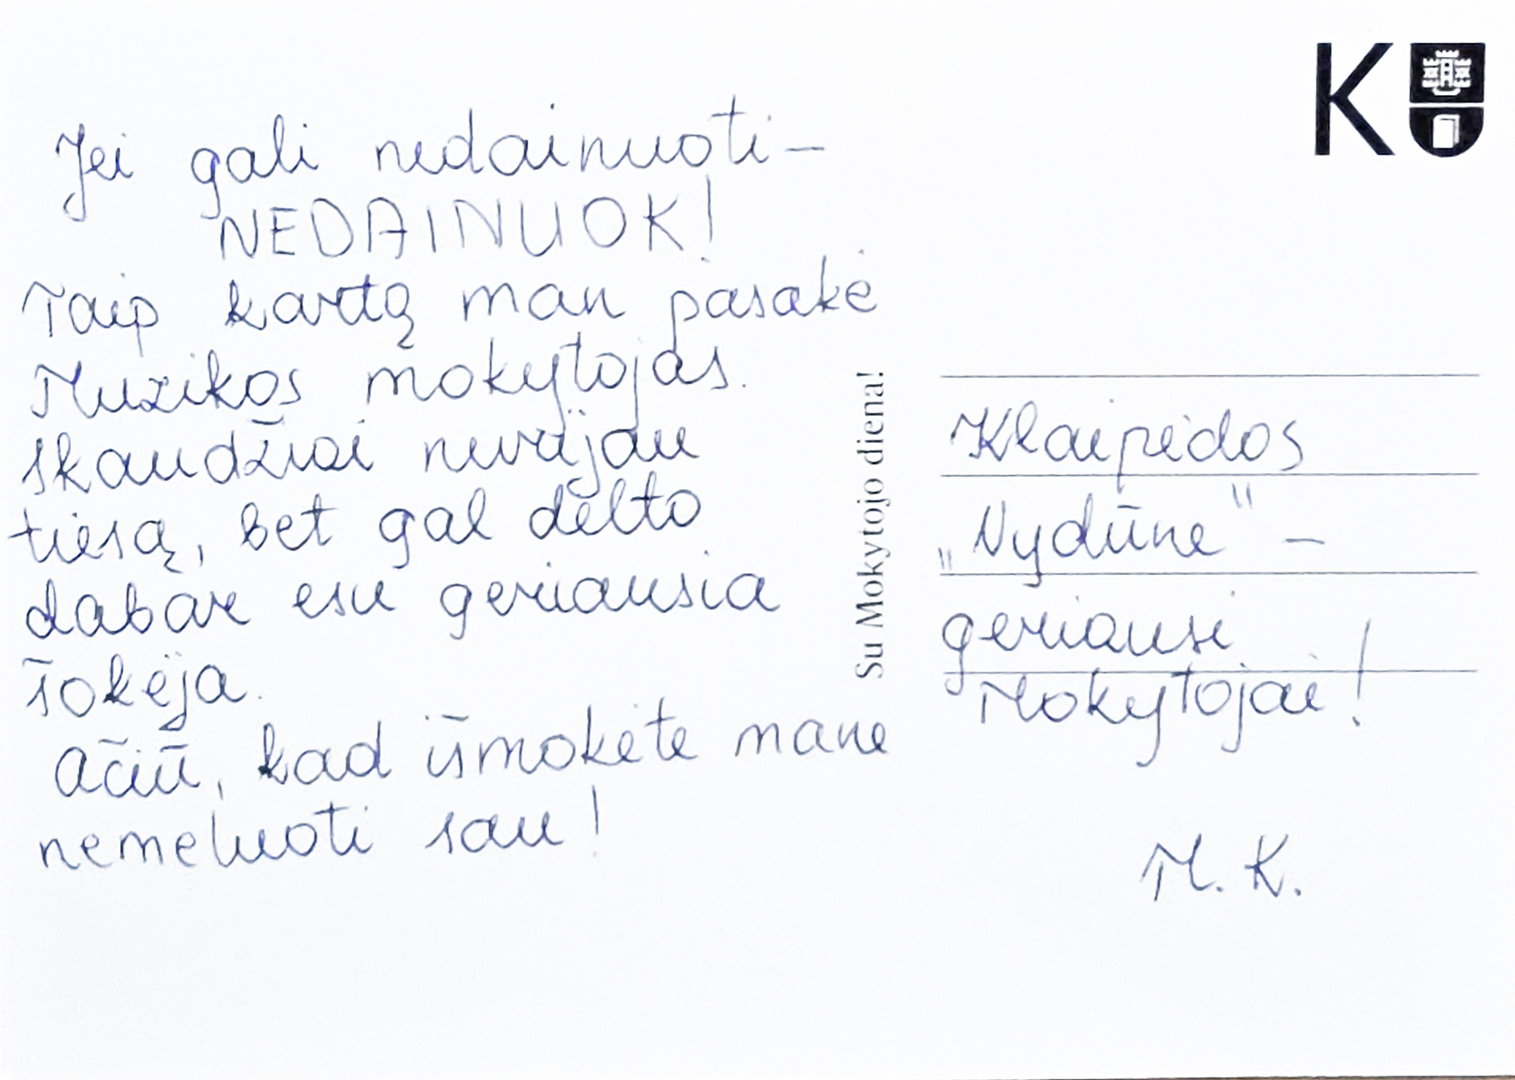 K
Jei gali nedainuoti –
NEDAINUOK!
Taip kartą man pasakė
Muzikos mokytojas.
Skaudžiai nuvijau
tiesą, bet gal dėlto
dabar esu geriausia
šokėja.
Ačiū, kad išmokėte mane
nemeluoti sau!
Su Mokytojo diena!
Klaipėdos
„Vydūne" –
geriausi
Mokytojai!
M. K.